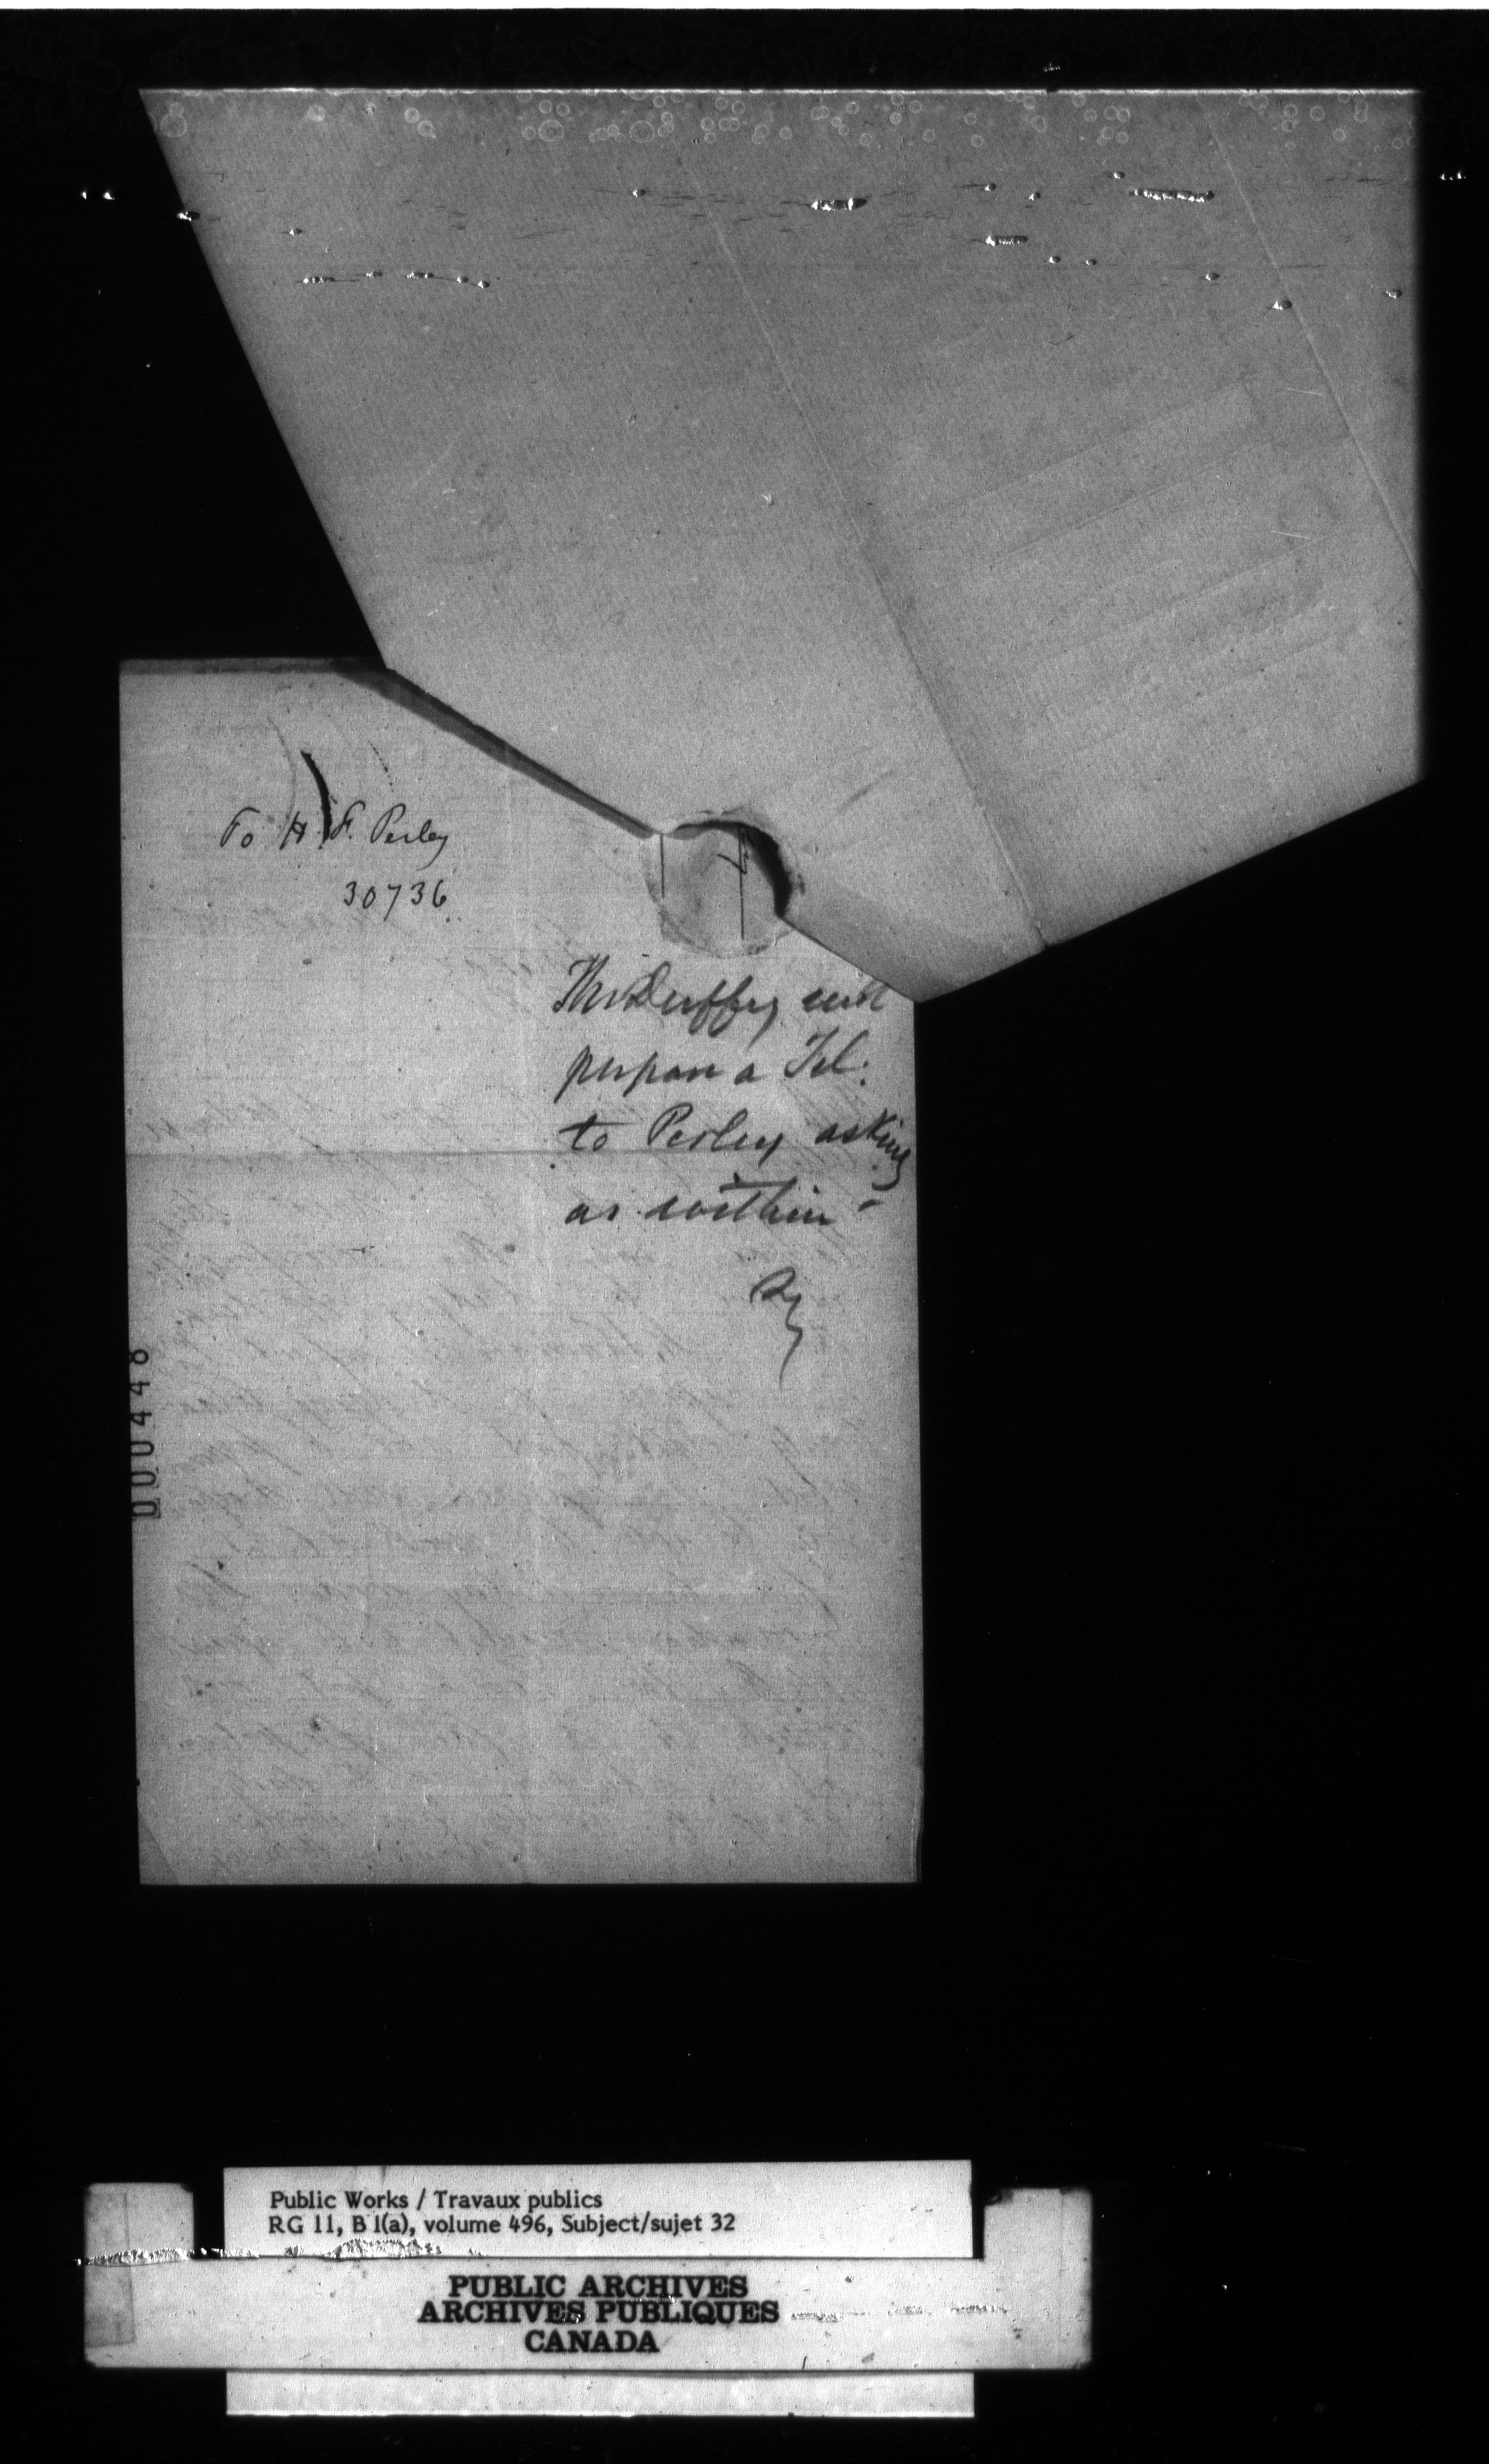 To H. F. Perley
30736
Mr Duffy will
prepare a Tel:
to Perley asking
as within
000448
Public Works / Travaux publics
RG 11, B 1(a), volume 496, Subject/sujet 32
PUBLIC ARCHIVES
ARCHIVES PUBLIQUES
CANADA